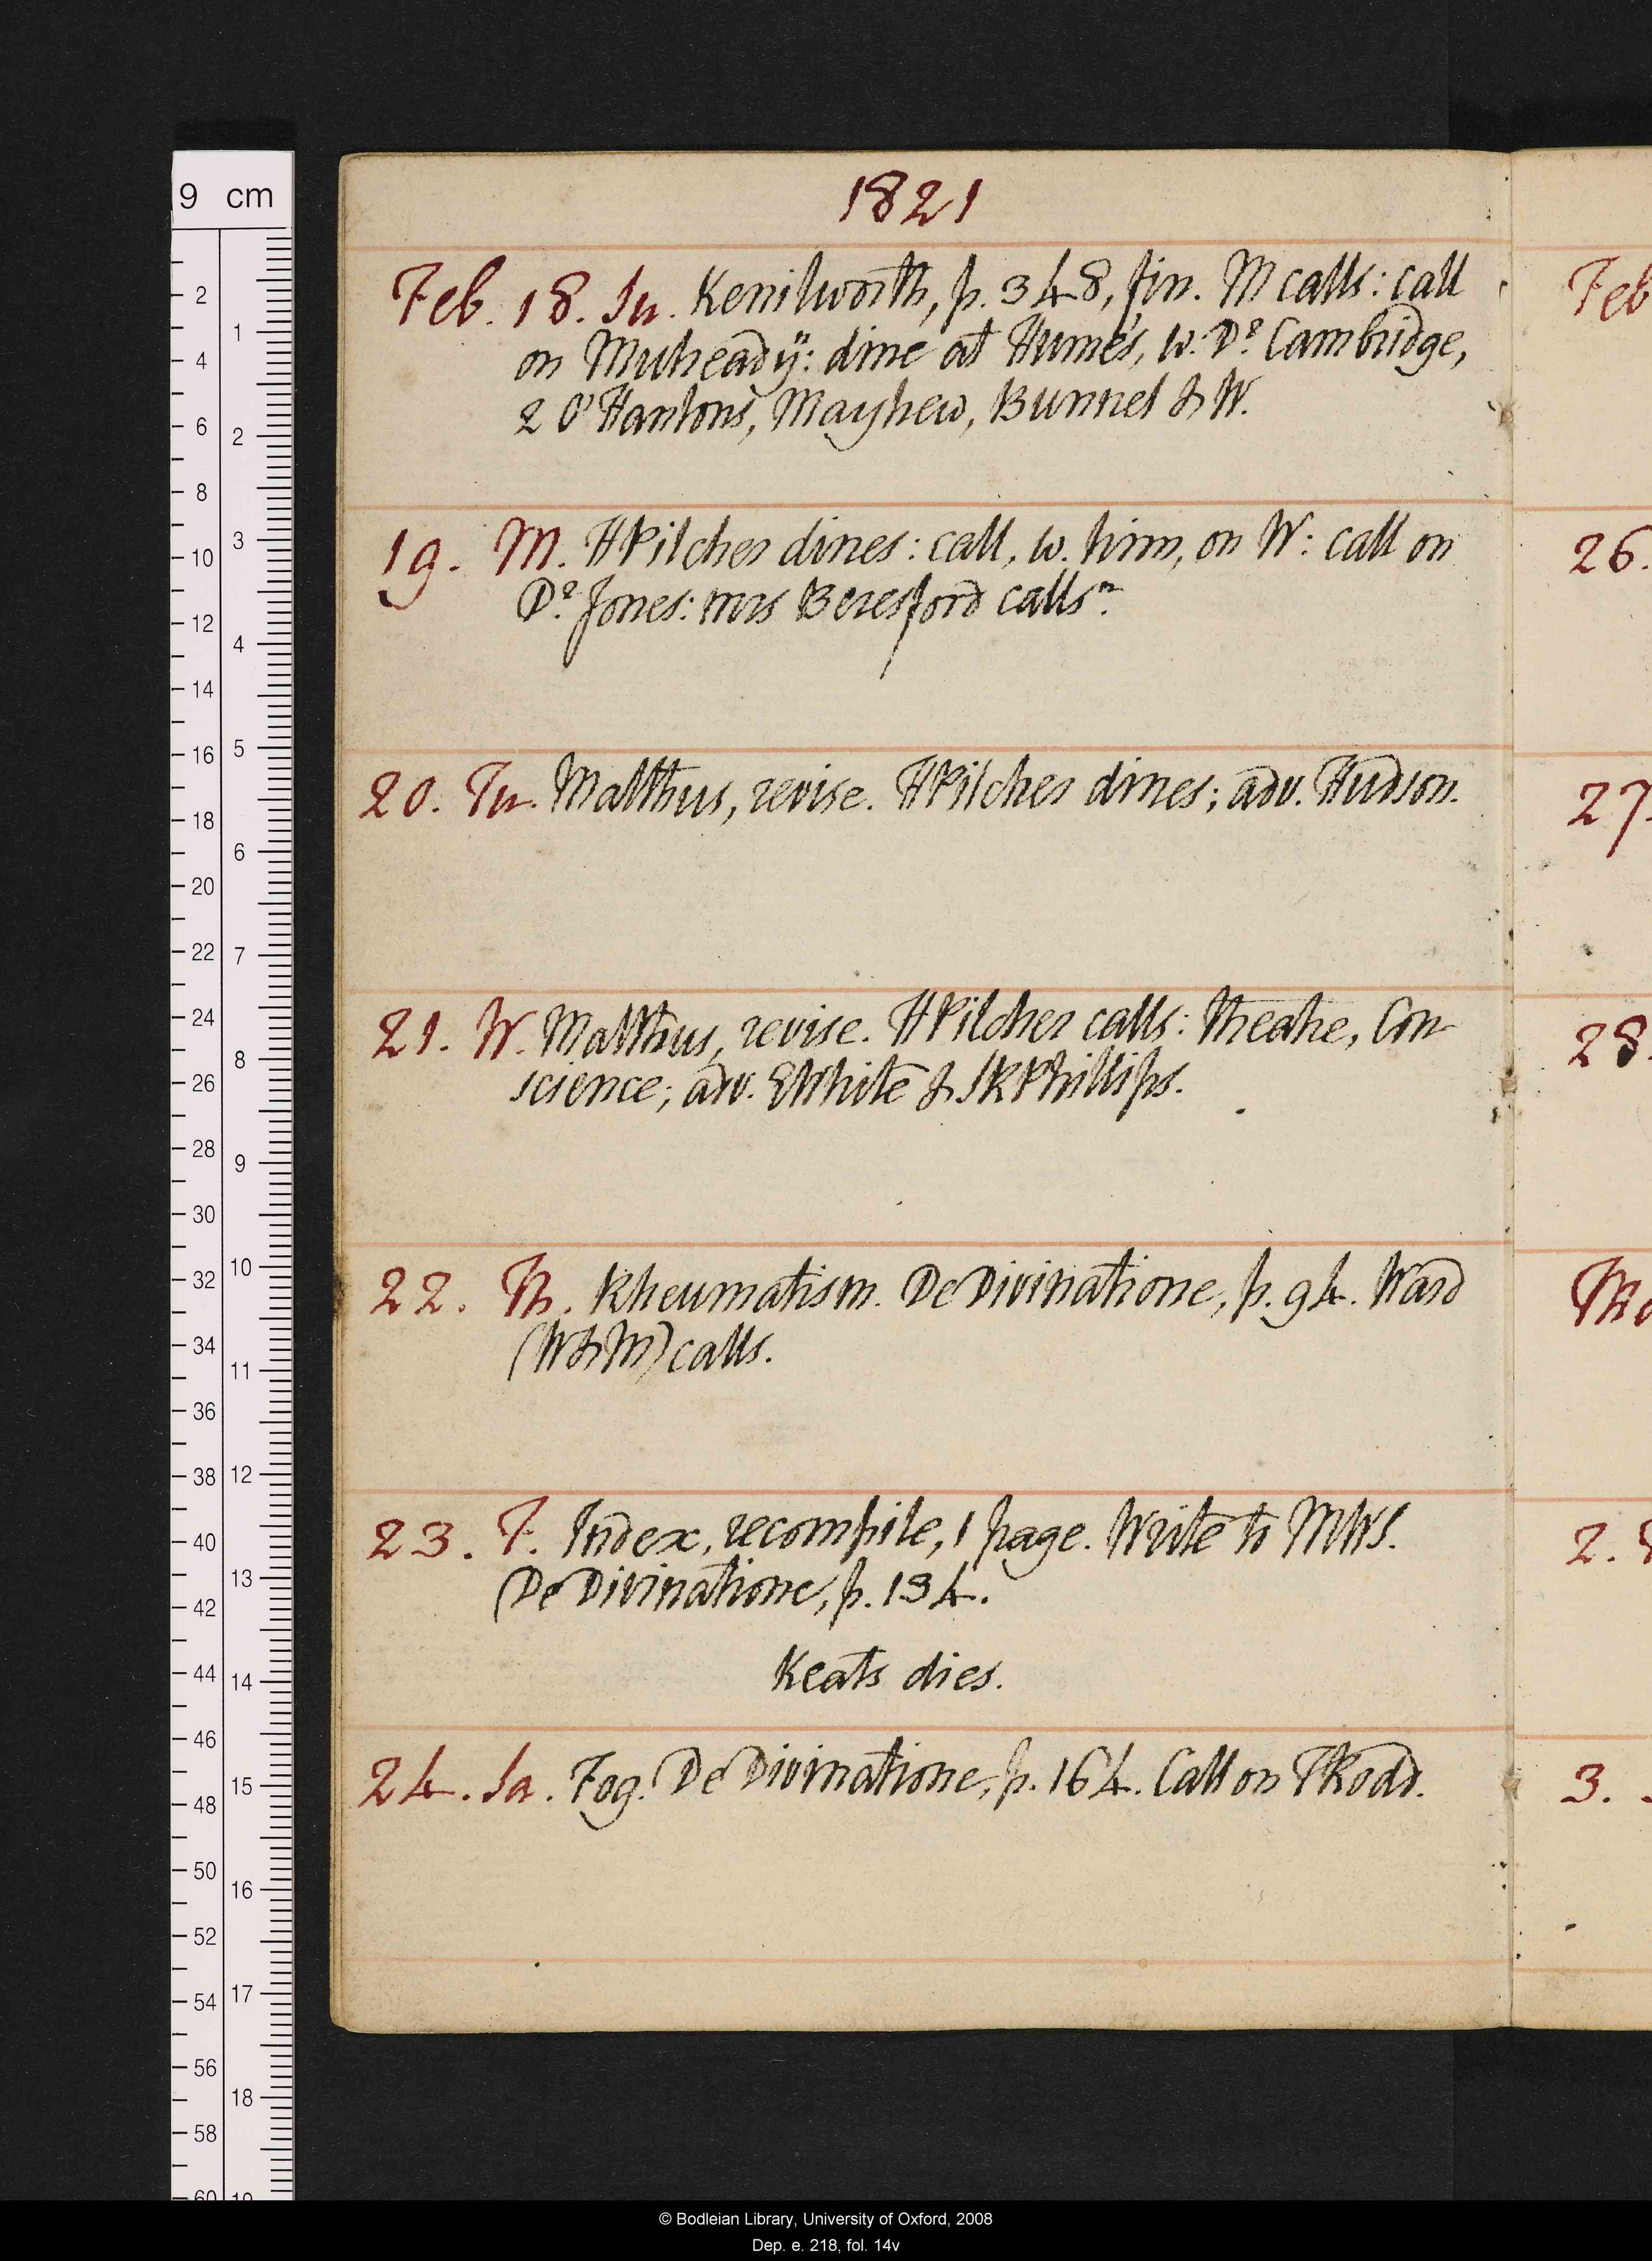 1821
Feb. 18. Su. Kenilworth, p. 348, fin. M calls: call
on Mulready: dine at Hume's, w. Dr Cambridge,
2 O'Hanlons, Mayhew, Bunnel & W.
19. M. HPilcher dines: call, w. him, on W: call on
Dr Jones: mrs Beresford calls n.
20. Tu. Malthus, revise. HPilcher dines; adv. Hudson.
21. W. Malthus, revise. HPilcher calls: theatre, Con-
science; adv. EWhite & SRPhillips.
22. Th. Rheumatism. De Divinatione, p. 94. Ward
(W&M) calls.
23. F. Index, recompile, 1 page. Write to MWS.
De Divinatione, p. 134.
Keats dies.
24. Sa. Fog. De Divinatione, p. 164. Call on TRodd.
Feb
26.
27.
28.
Ma
2.
3.
9 cm
© Bodleian Library, University of Oxford, 2008
Dep. e. 218, fol. 14v